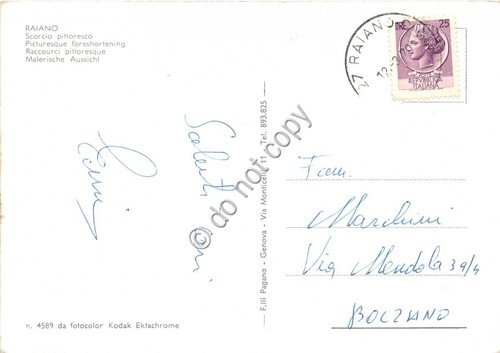 RAIANO
Scorcio pittoresco
Picturesque foreshortening
Raccourci pittoresque
Malerische Aussicht
27 RAIANO
25
REPUBBLICA
ITALIANA
Saluti
© do not copy
F.lli Pagano - Genova - Via Monticelli 11 - Tel. 893.825
Fam.
Marchini
Via Mendola 39/4
BOLZANO
n. 4589 da fotocolor Kodak Ektachrome